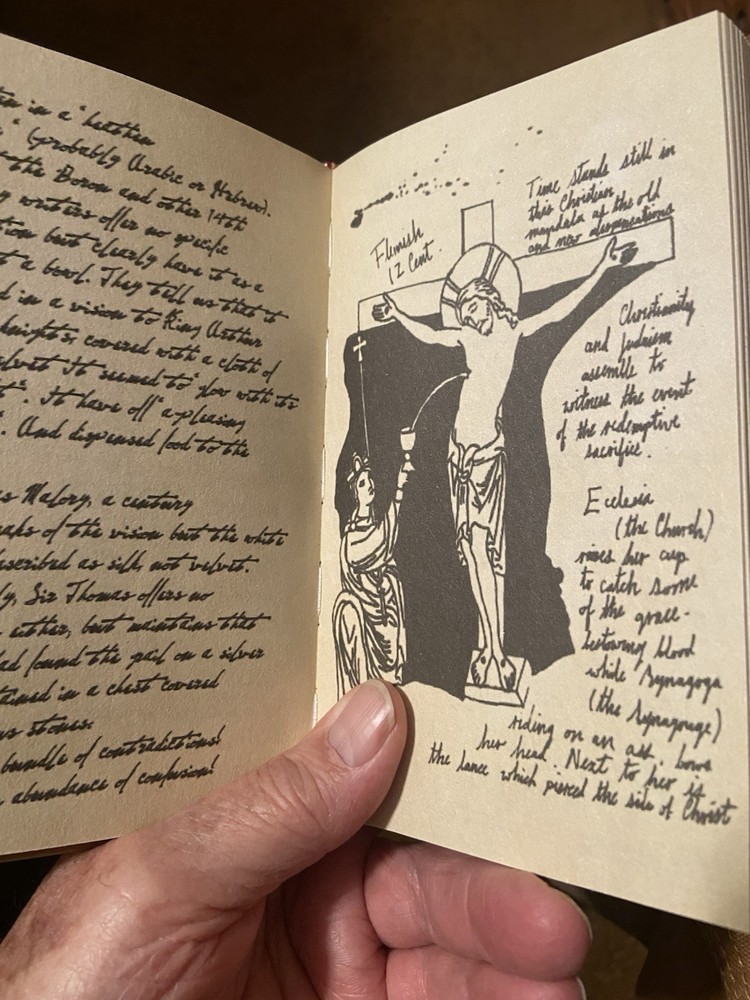 in a "heathen
" (probably Arabic or Hebrew).
the Boron and other 14th
writers offer no specific
but clearly have it as a
t a bowl. They tell us that it
d in a vision to King Arthur
knights, covered with a cloth of
It seemed to "glow with its
". It have off "a pleasing
". And dispensed food to the
Malory, a century
of the vision but the white
described as silk, not velvet.
ly, Sir Thomas offers no
either, but maintains that
had found the grail on a silver
tained in a chest covered
us stones.
bundle of contradictions!
abundance of confusion!
Flemish
12 Cent.
Time stands still in
this Christian
mandala as the old
and new dispensations
Christianity
and Judaism
assemble to
witness the event
of the redemptive
sacrifice.
Eclesia
(the Church)
rises her cup
to catch some
of the grace-
bestowing blood
while Synagoga
(the Synagouge)
riding on an ass, bows
her head. Next to her is
the lance which pierced the side of Christ